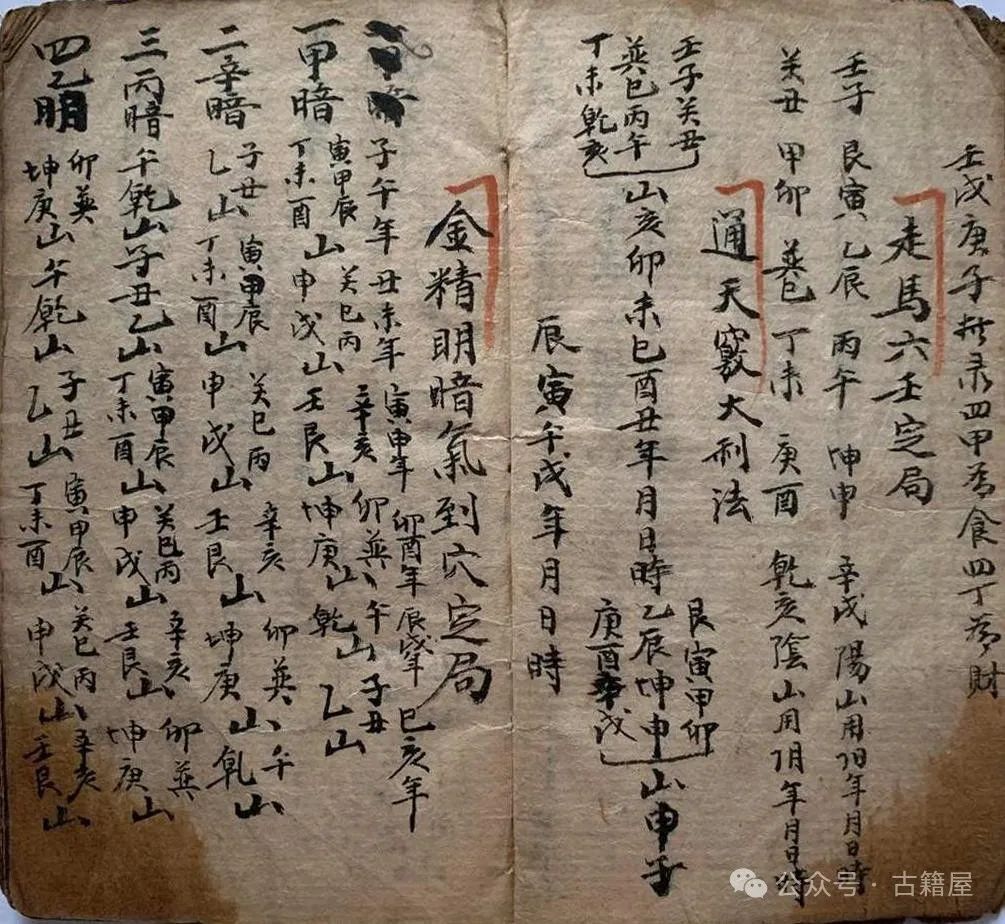 壬戌庚子录四甲為食四丁為財
走馬六壬定局
壬子 艮寅 乙辰 丙午 坤申 辛戌陽山用阳年月日時
癸丑 甲卯 巽巳 丁未 庚酉 乾亥陰山用阴年月日時
通天竅大利法
壬子癸丑
巽巳丙午
丁未乾亥
山亥卯未巳酉丑年月日時乙辰坤申山申子
艮寅甲卯
庚酉辛戌
辰寅午戌年月日時
金精明暗氣到穴定局
子午年 丑未年 寅申年 卯酉年 辰戌年 巳亥年
一甲暗 寅甲辰丁未酉山 癸巳丙申戌山 辛亥壬艮山 卯巽坤庚山 午乾山 子丑乙山
二辛暗 子丑乙山 寅甲辰丁未酉山 癸巳丙申戌山 辛亥壬艮山 卯巽坤庚山 午乾山
三丙暗 午乾山 子丑乙山 寅甲辰丁未酉山 癸巳丙申戌山 辛亥壬艮山 卯巽坤庚山
四乙明 卯巽坤庚山 午乾山 子丑乙山 寅甲辰丁未酉山 癸巳丙申戌山 辛亥壬艮山
公众号·古籍屋